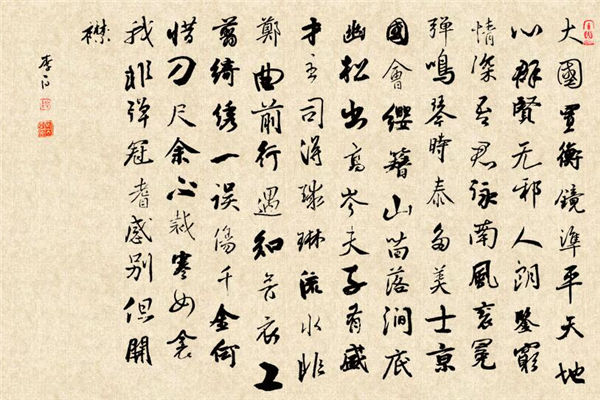 大國置衡鏡準平天地
心群賢无邪人朗鑒窮
情深吾君詠南風袞冕
彈鳴琴時泰多美士京
國會纓簪山苗落澗底
幽松出高岑夫子有盛
才主司得球琳流水非
鄭曲前行遇知音衣工
剪綺绣一误傷千金何
惜刀尺余心裁寒女衾
我非弹冠者感别但開
襟
李白